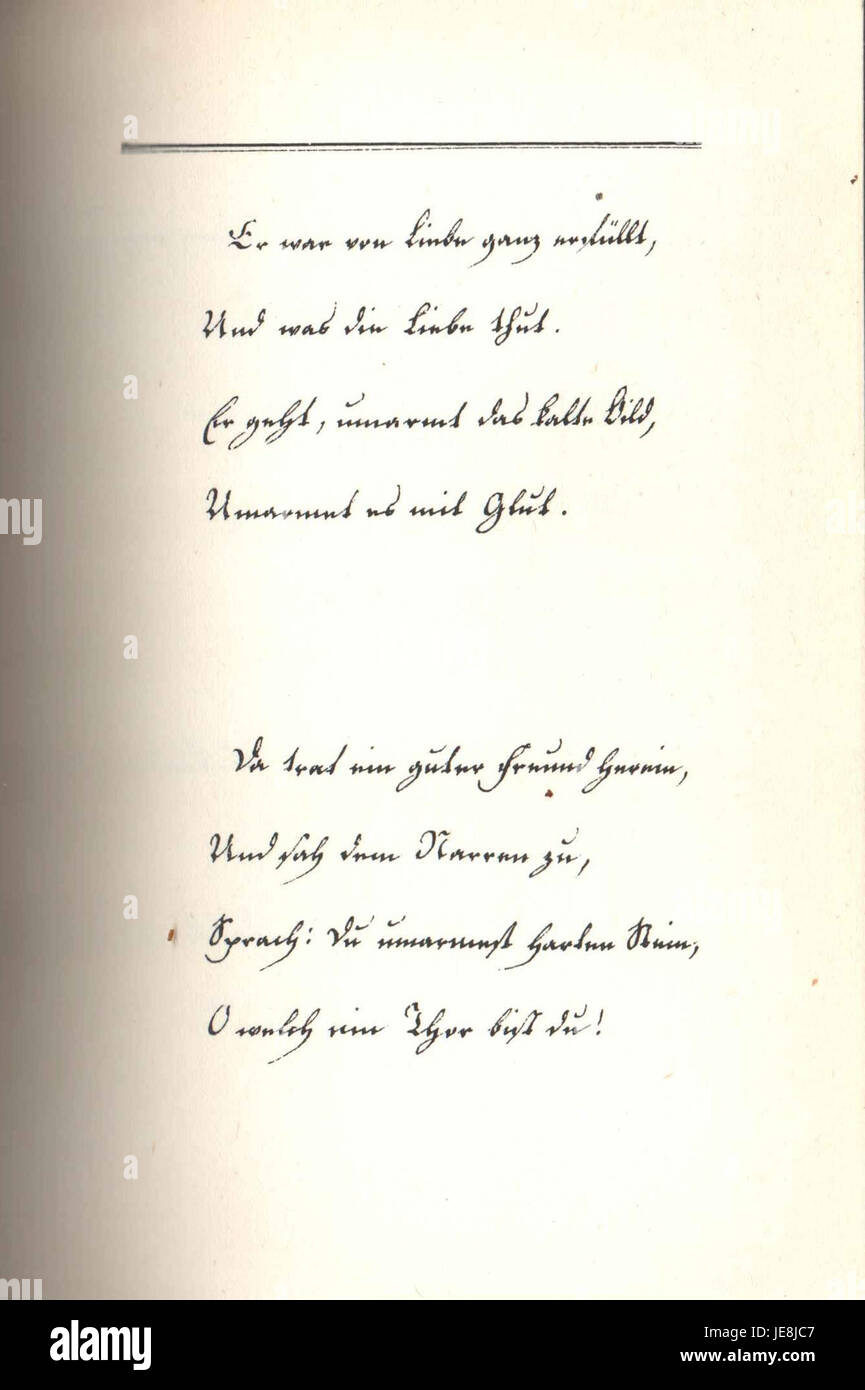 Er war von Liebe ganz erfüllt,
Und was die Liebe thut.
Er geht, umarmt das kalte Bild,
Umarmet es mit Glut.
Da trat ein guter Freund herein,
Und sah dem Narren zu,
Sprach: Du umarmest harten Stein,
O welch ein Thor bist du!
a
a
a
a
a
alamy
alamy stock photo
JE8JC7
www.alamy.com